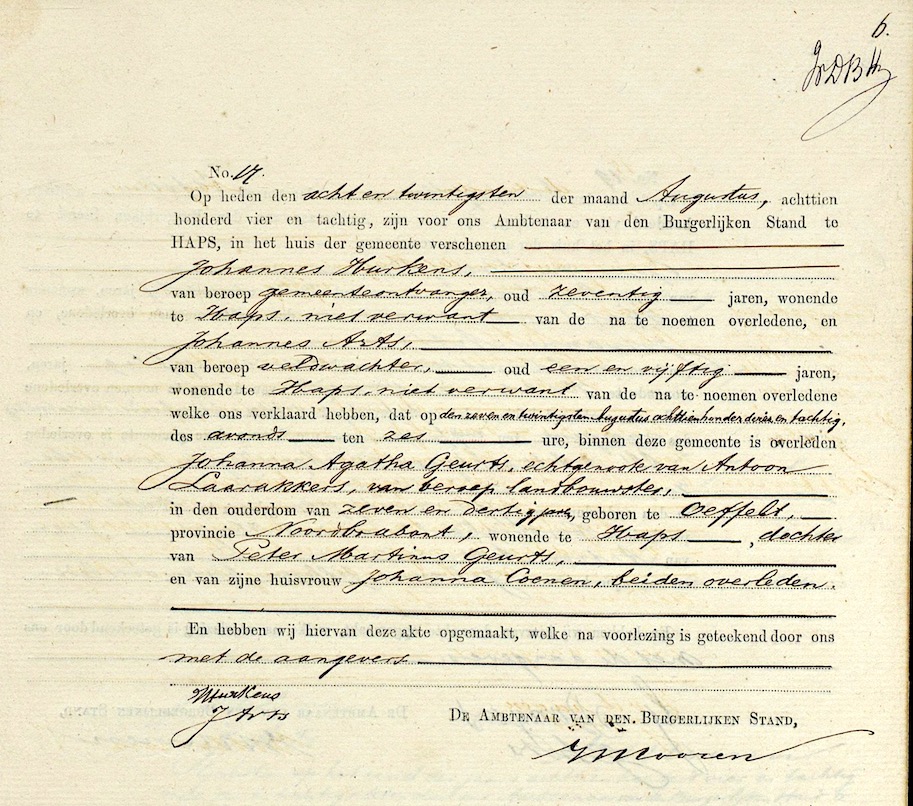 6.
No. 17.
Op heden den acht en twintigsten der maand Augustus, achttien
honderd vier en tachtig, zijn voor ons Ambtenaar van den Burgerlijken Stand te
HAPS, in het huis der gemeente verschenen
Johannes Hurkens,
van beroep gemeenteontvanger, oud zeventig jaren, wonende
te Haps, niet verwant van de na te noemen overledene, en
Johannes Arts,
van beroep veldwachter, oud een en vijftig jaren,
wonende te Haps, niet verwant van de na te noemen overledene
welke ons verklaard hebben, dat op den zeven en twintigsten Augustus achttienhonderd vier en tachtig,
des avonds ten zes ure, binnen deze gemeente is overleden
Johanna Agatha Geurts, echtgenoote van Antoon
Laarakkers, van beroep landbouwster,
in den ouderdom van zeven en dertig jaren, geboren te Oeffelt,
provincie Noordbrabant, wonende te Haps, dochter
van Peter Martinus Geurts,
en van zijne huisvrouw Johanna Coenen, beiden overleden.
En hebben wij hiervan deze akte opgemaakt, welke na voorlezing is geteekend door ons
met de aangevers.
Hurkens
J Arts
DE AMBTENAAR VAN DEN BURGERLIJKEN STAND,